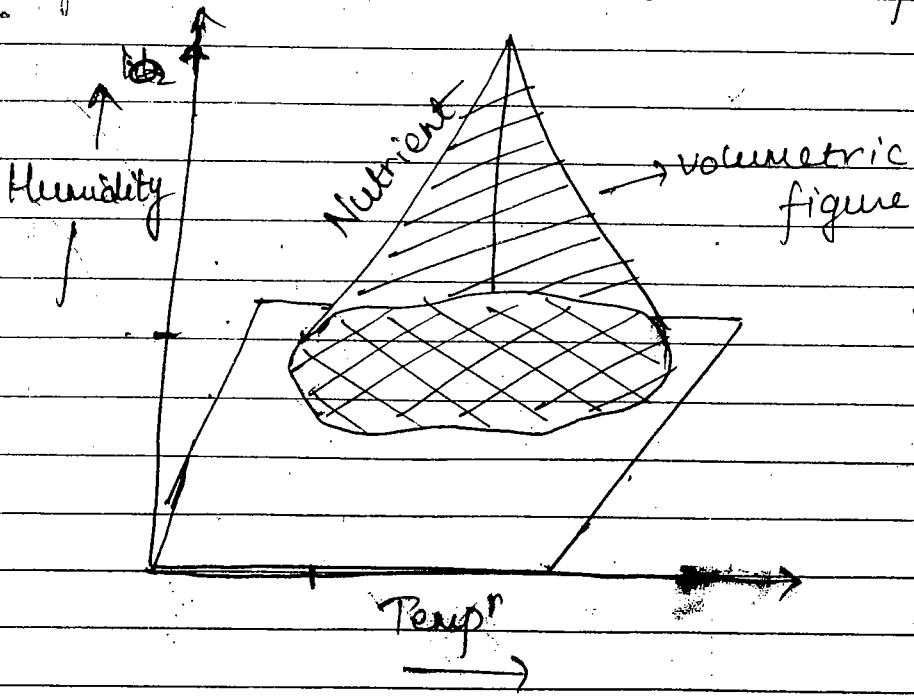 Humidity
Nutrient
volumetric
figure
Tempr